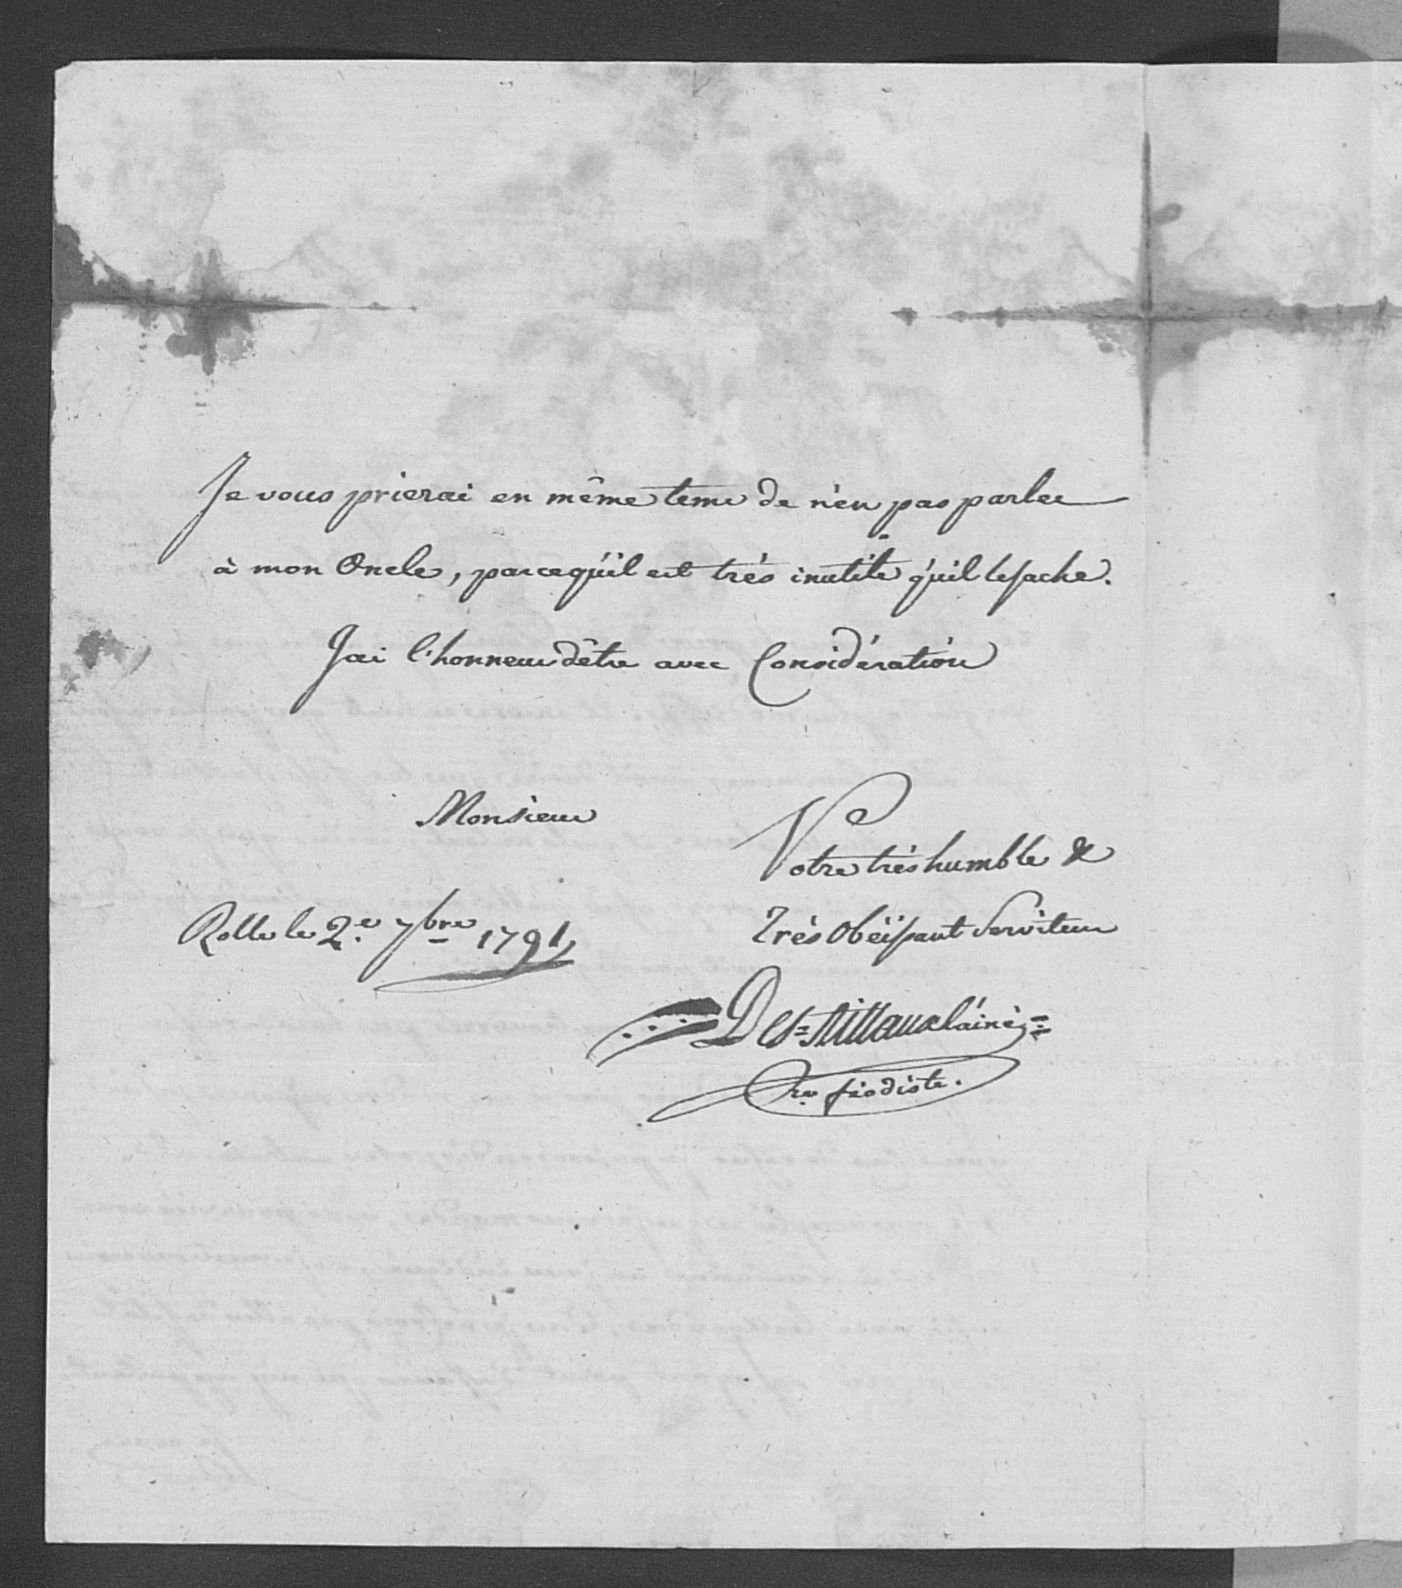 Je vous prierai en même tems de n'en pas parler
à mon Oncle, parcequ'il est trés inutile qu'il le sache.
J'ai l'honneur d'être avec Considération
Monsieur
Votre trés humble &
Trés Obéissant Serviteur
Rolle le 2.e 7bre 1791,
l'ainé
féodiste.